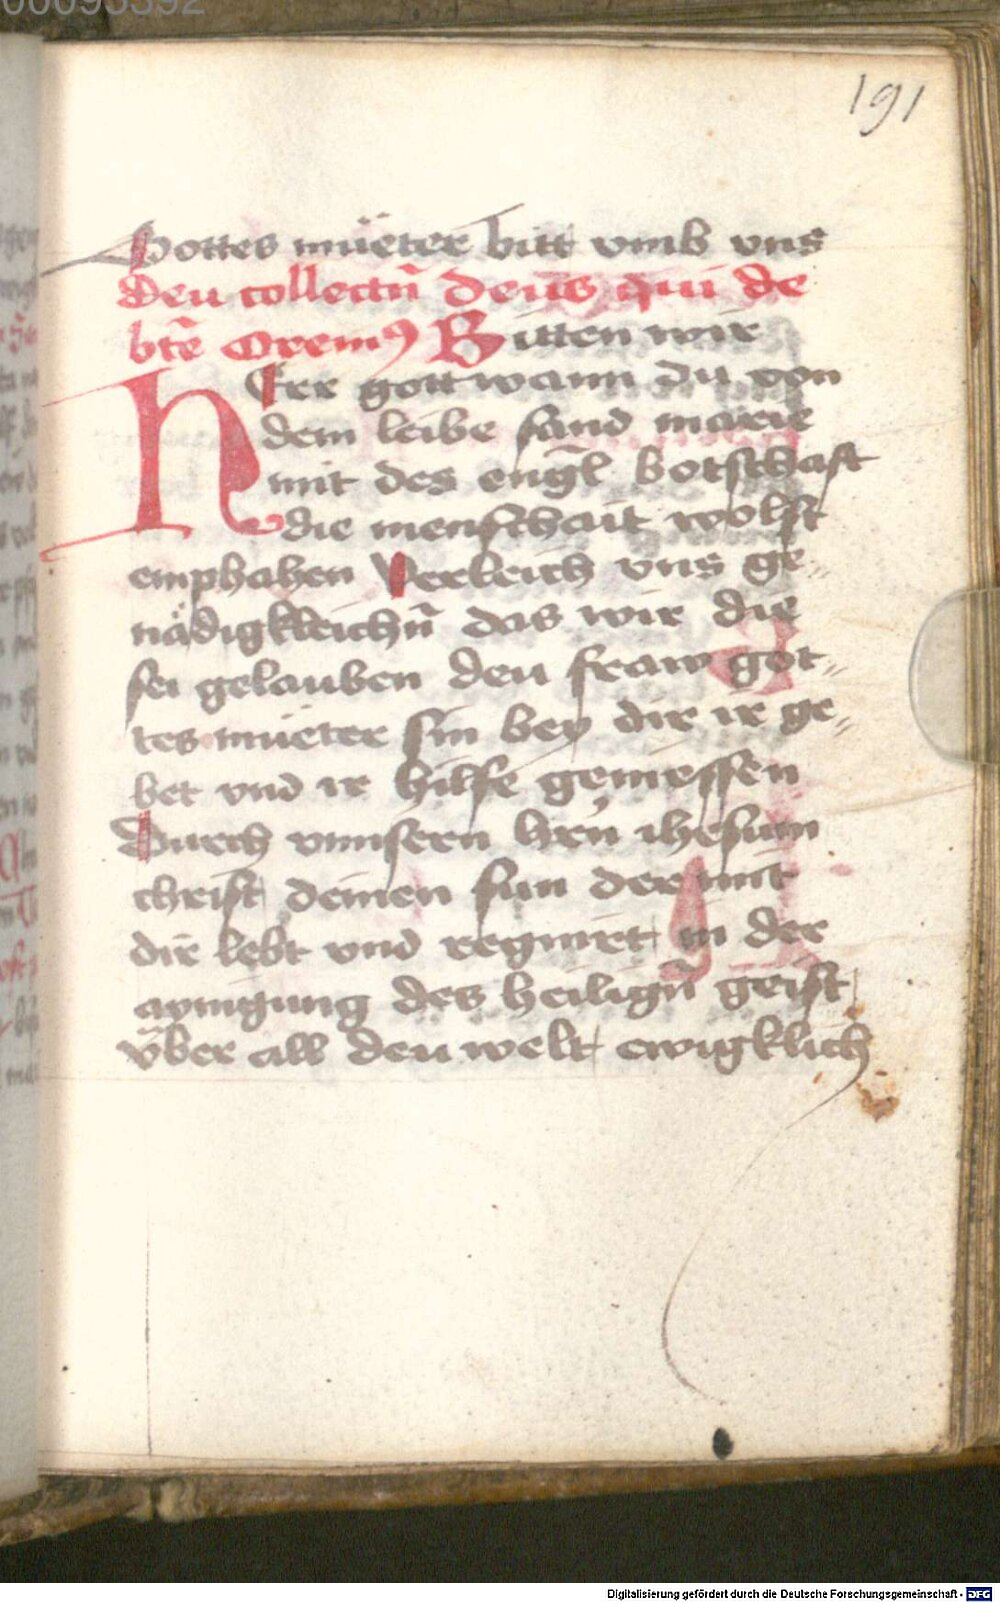 191
Gottes mueter bitt vmb vns
deu collectn̄ deus qui de
btē Oremꝰ Bitten wir
HErr gott wann du von
dem leibe sand marie
mit des engl̄ botschaft
die menschait wolst
emphahen Verleich vns ge„
nädigkleichn̄ das wir die
sei gelauben deu fraw got„
tes müeter sin bey dir ir ge„
bet vnd ir hilfe geniessen
Durch vnnsern hrn̄ ihesum
christ deinen sun der mit
dir lebt vnd regnirt in der
aynigung des heilign̄ geist
vber all deu welt ewigklich
Digitalisierung gefördert durch die Deutsche Forschungsgemeinschaft - DFG